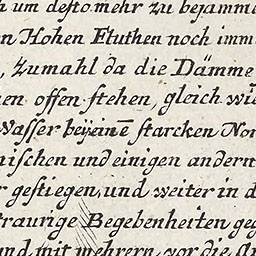 um desto mehr zu bejamme
Hohen Fluthen noch imm
, zumahl da die Dämme
en offen stehen, gleich wie
Wasser beÿ eine starcken Nor
nischen und einigen andern
r gestiegen, und weiter in d
traurige Begebenheiten geg
und mit mehrern, vor die